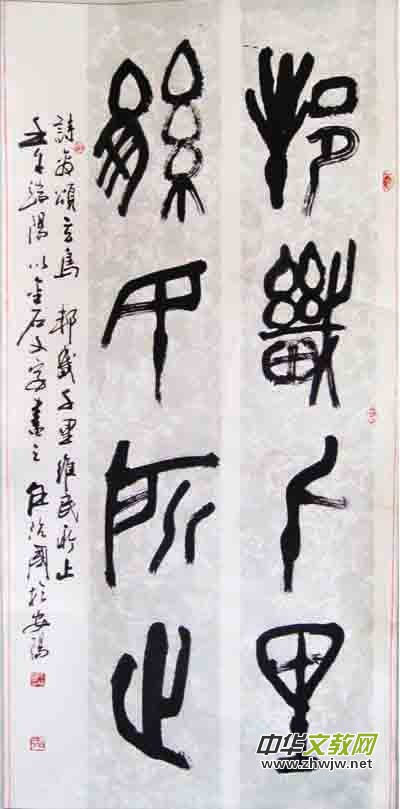 邦畿千里
維民所止
詩商頌玄鳥 邦畿千里維民所止
端陽以金石文字書之 於安陽
中华文教网
www.zhwjw.net